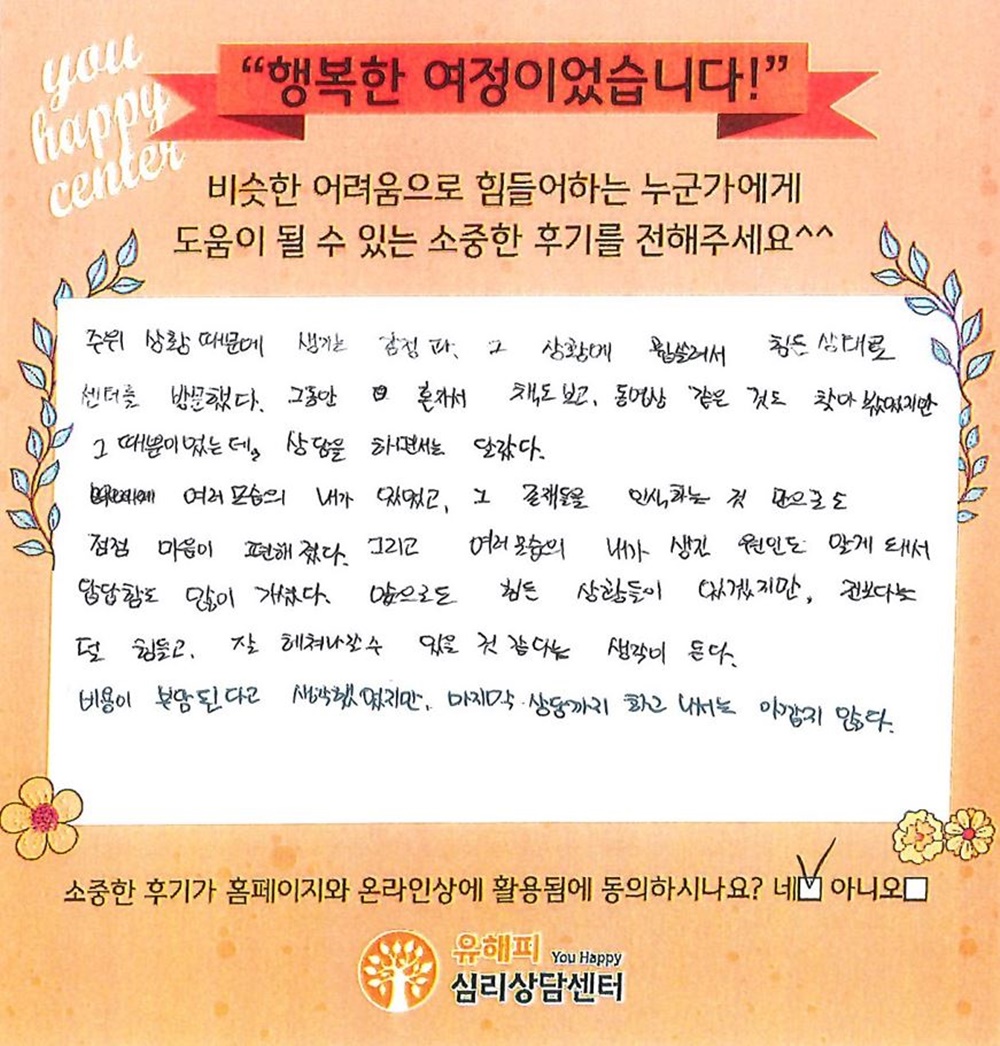 you
happy
center
“행복한 여정이었습니다!”
비슷한 어려움으로 힘들어하는 누군가에게
도움이 될 수 있는 소중한 후기를 전해주세요^^
주위 상황 때문에 생기는 감정과, 그 상황에 휩쓸려서 힘든 상태로
센터를 방문했다. 그동안 혼자서 책도 보고, 동영상 같은 것도 찾아 봤었지만
그 때뿐이었는데, 상담을 하면서는 달랐다.
여러 모습의 내가 있었고, 그 존재들을 인식하는 것 만으로도
점점 마음이 편해 졌다. 그리고 여러 모습의 내가 생긴 원인도 알게 돼서
답답함도 많이 가셨다. 앞으로도 힘든 상황들이 있겠지만, 전보다는
덜 힘들고, 잘 헤쳐나갈 수 있을 것 같다는 생각이 든다.
비용이 부담된다고 생각했었지만, 마지막 상담까지 하고 나서는 아깝지 않다.
소중한 후기가 홈페이지와 온라인상에 활용됨에 동의하시나요? 네 아니오
유해피 You Happy
심리상담센터